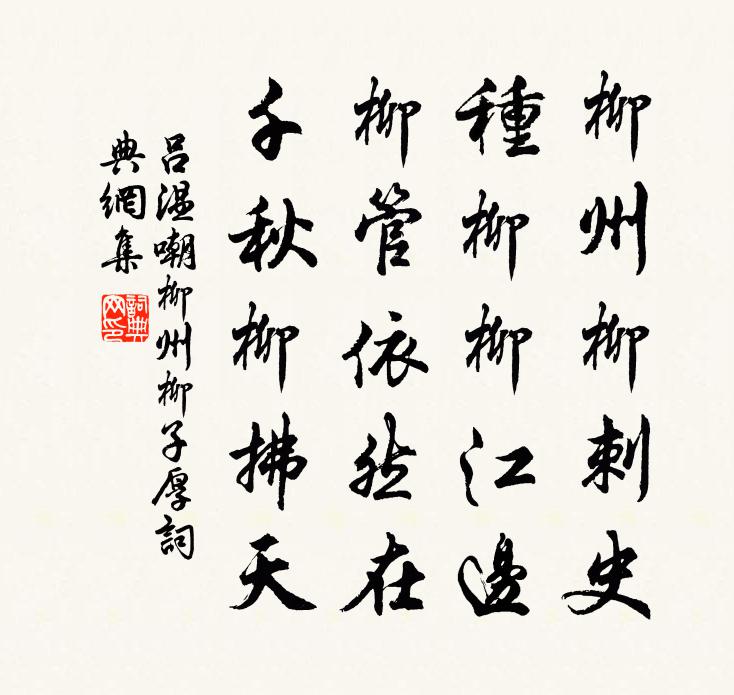 柳州柳刺史
種柳柳江邊
柳管依然在
千秋柳拂天
吕溫嘲柳州柳子厚詞
典網集
詞典
网印